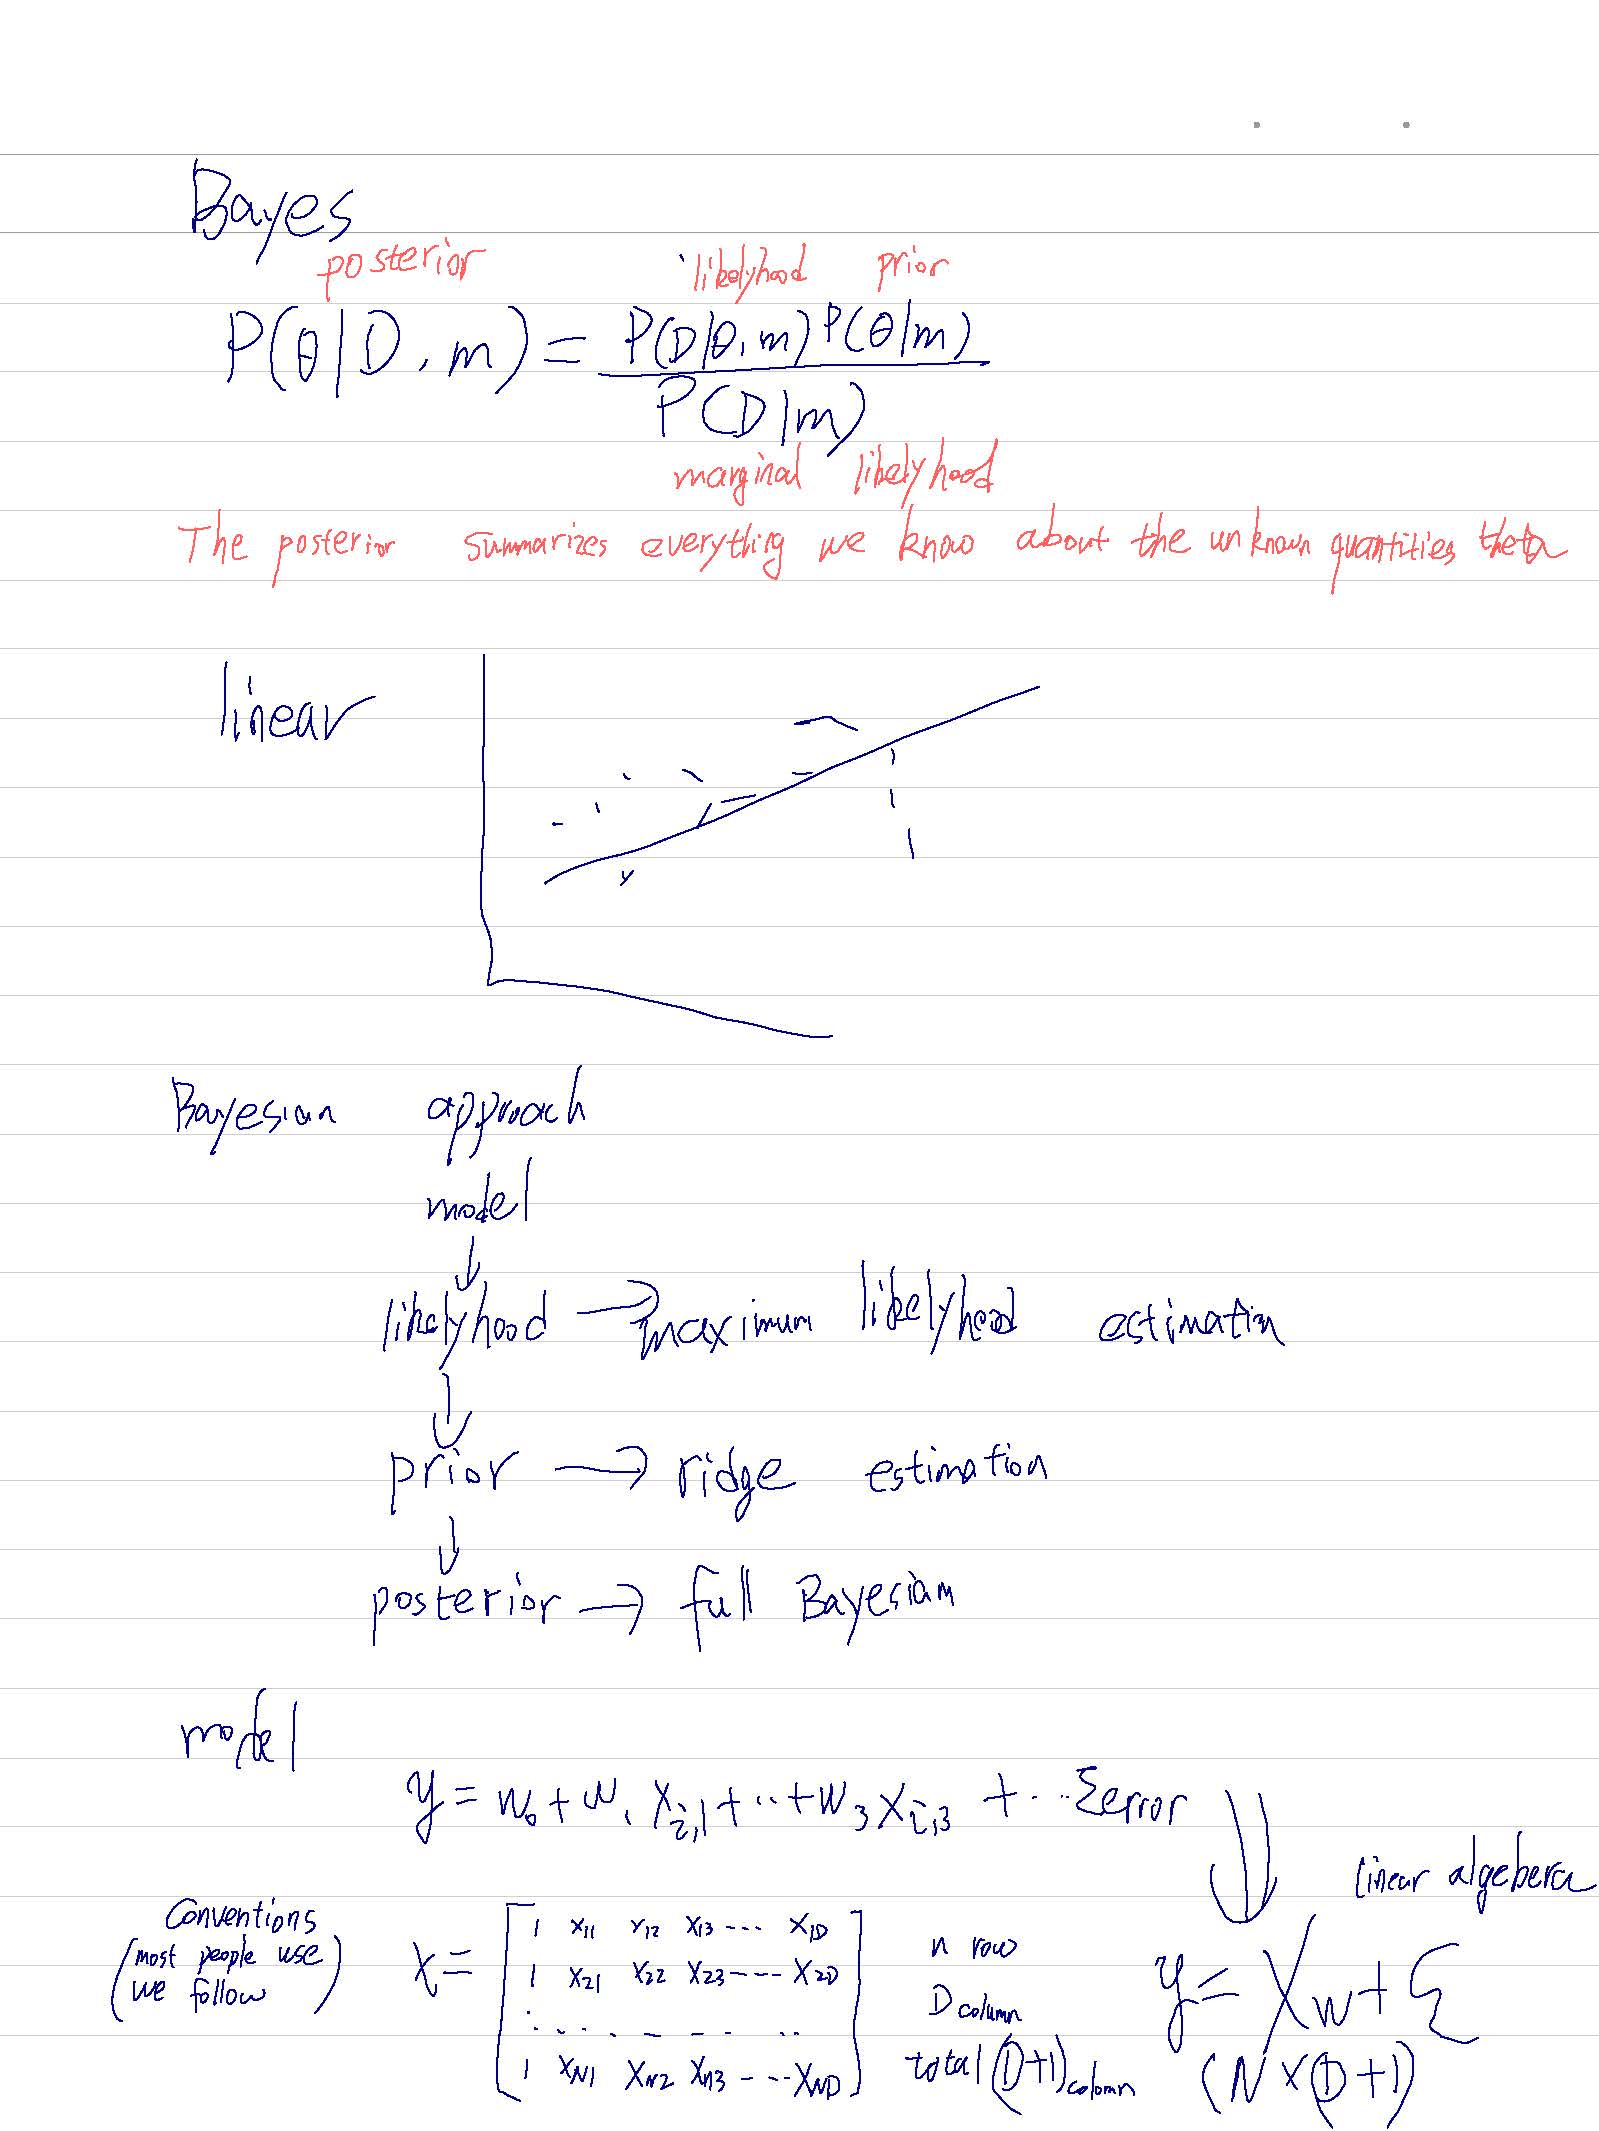 Bayes
posterior likelyhood prior
P(θ|D, m) = P(D|θ, m) P(θ|m)
P(D|m)
marginal likelyhood
The posterior summarizes everything we know about the unknown quantities theta
linear
Bayesian approach
model
↓
likelyhood → maximum likelyhood estimation
↓
prior → ridge estimation
↓
posterior → full Bayesian
model
y = w₀ + w₁ x_{i,1} + ·· + w₃ x_{i,3} + ··· Σerror
linear algebera
Conventions
(most people use
we follow)
X = [ 1 x₁₁ x₁₂ x₁₃ ---- x_{1D} ]
1 x₂₁ x₂₂ x₂₃ ---- x_{2D}
1 x_{N1} x_{N2} x_{n3} ---- x_{ND}
n row
D column
total (D+1) column
y = Xw + ξ
(N × (D+1))